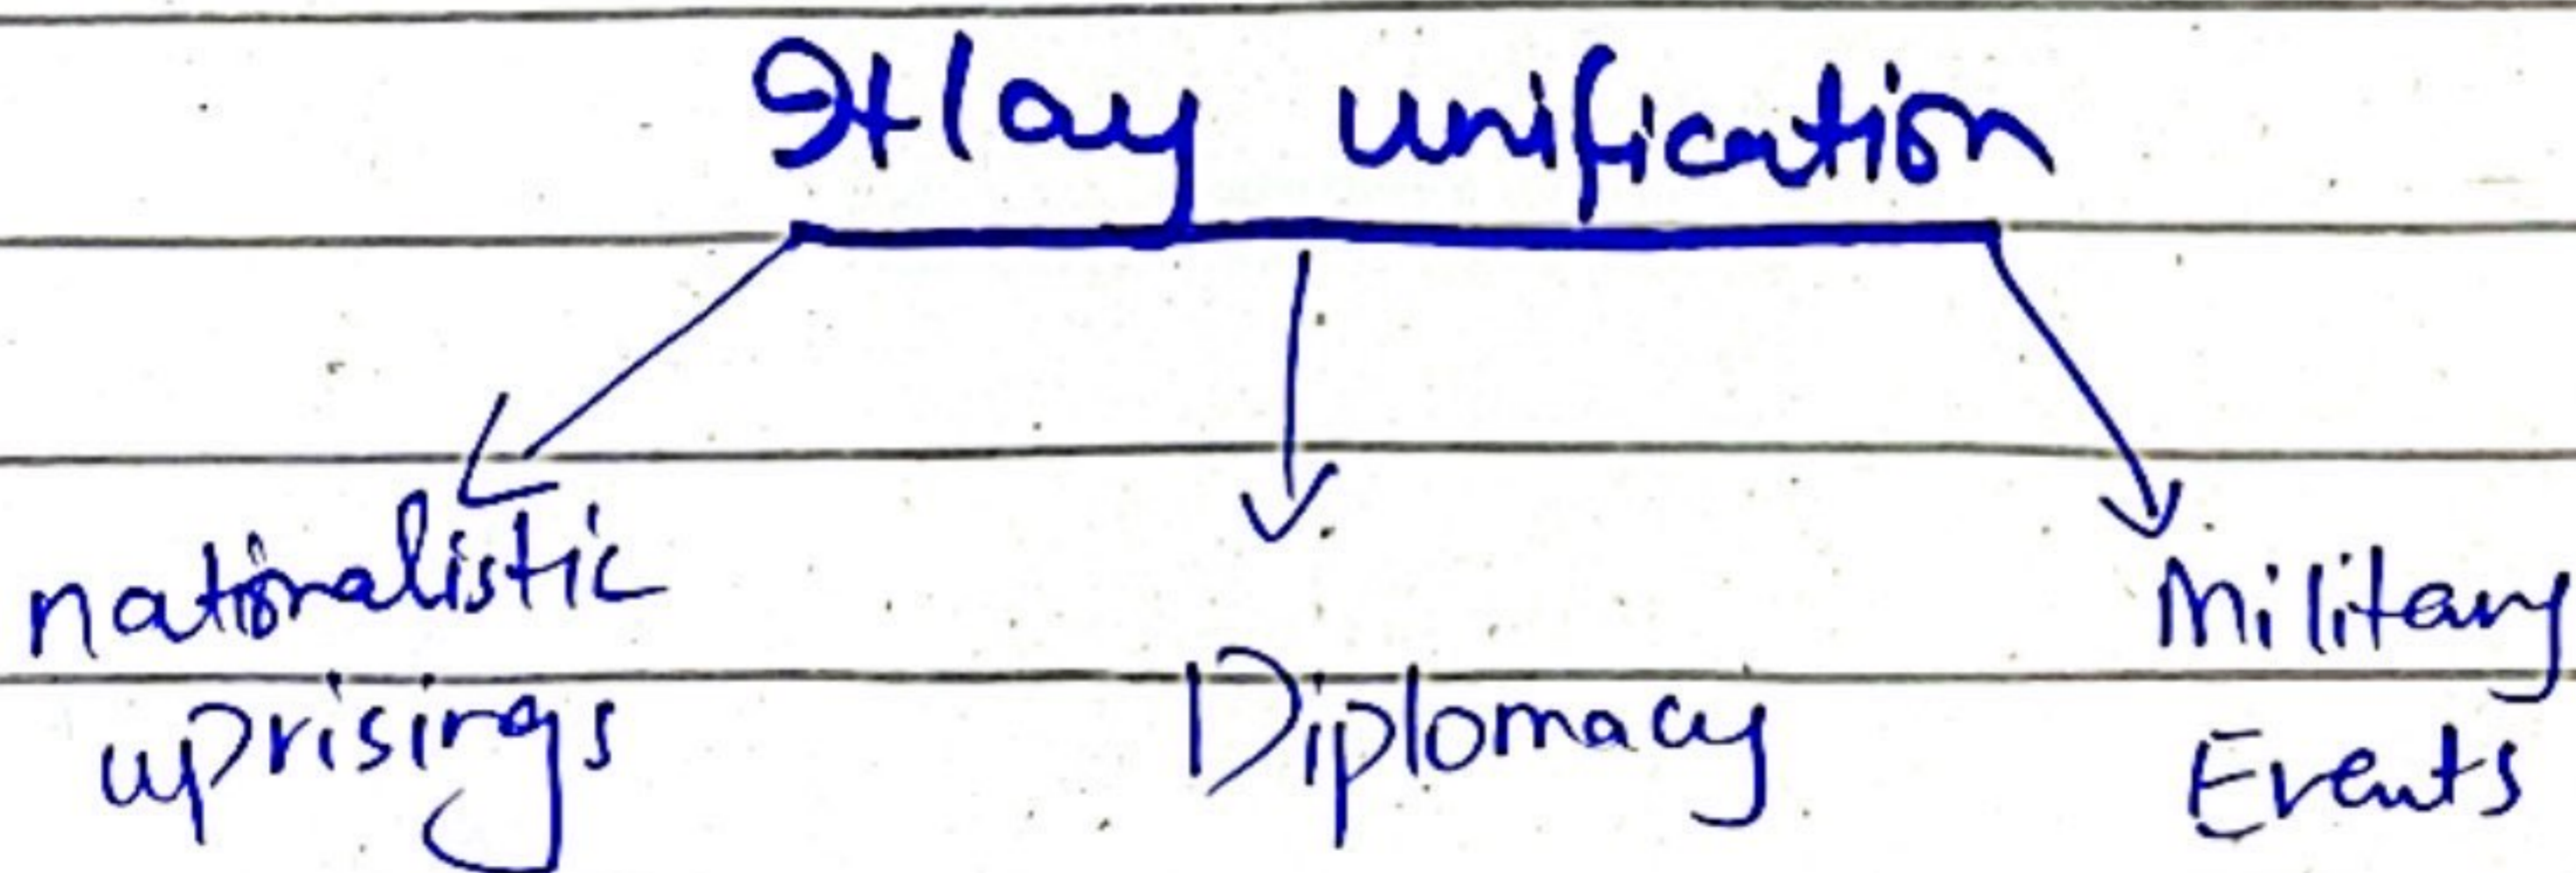 Itlay unification
nationalistic
uprisings
Diplomacy
Military
Events